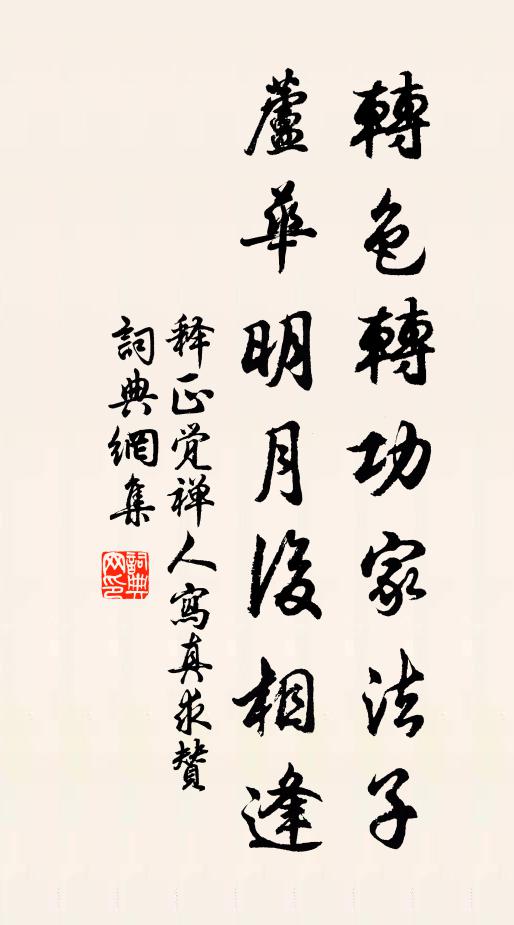 轉色轉功家法子
蘆華明月後相逢
释正觉禅人寫真求贊
詞典網集
詞典網印